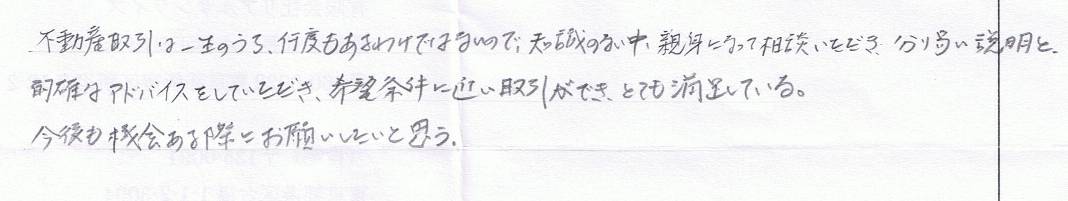 不動産取引は一生のうち、何度もあるわけではないので、知識のない中、親身になって相談いただき、分り易い説明と、
的確なアドバイスをしていただき、希望条件に近い取引ができ、とても満足している。
今後も機会ある際にお願いしたいと思う。